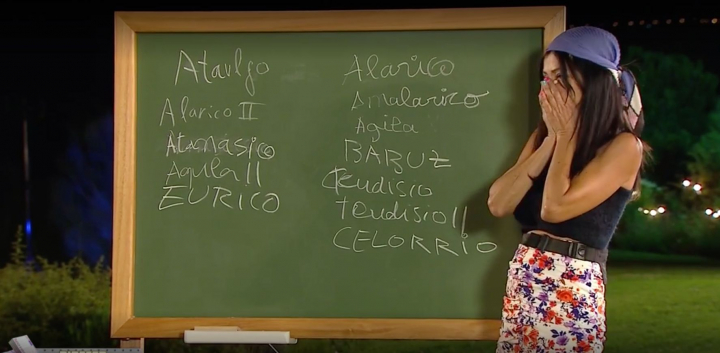 Ataulfo
Alarico II
Atanasico
Aquila II
EURICO
Alarico
Amalarico
Agila
BABUZ
Teudisio
Teudisio II
CELORRIO